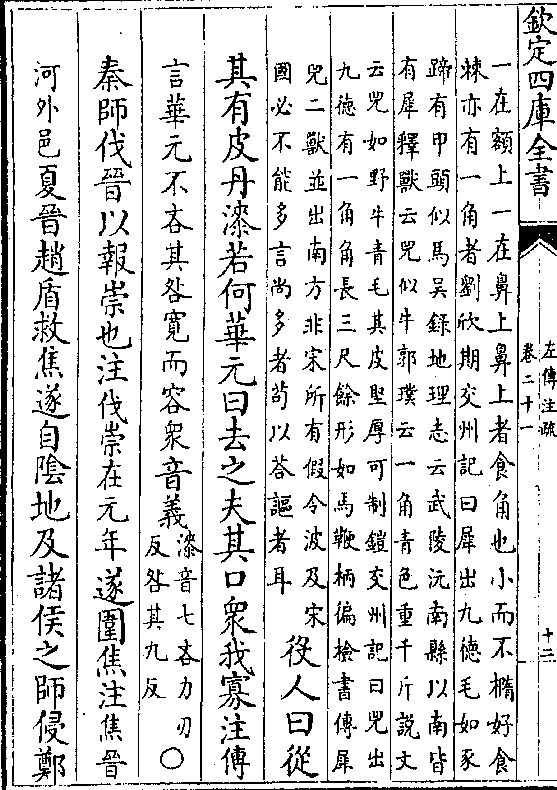 欽定四庫全書
左傳注疏
卷二十一
十二
一在額上一在鼻上鼻上者食角也小而不橢好食
棘亦有一角者劉欣期交州記曰犀出九德毛如豕
蹄有甲頭似馬吳錄地理志云武陵沅南縣以南皆
有犀釋獸云兕似牛郭璞云一角青色重千斤説文
云兕如野牛青毛其皮堅厚可制鎧交州記曰兕出
九德有一角角長三尺餘形如馬鞭柄偏檢書傳犀
兕二獸並出南方非宋所有假令波及宋
國必不能多言尚多者苟以荅謳者耳
役人曰從
其有皮丹漆若何華元曰去之夫其口衆我寡注傳
言華元不吝其咎寛而容衆音義
漆音七吝力刃
反咎其九反
○
秦師伐晉以報崇也注伐崇在元年遂圍焦注焦晉
河外邑夏晉趙盾救焦遂自陰地及諸侯之師侵鄭